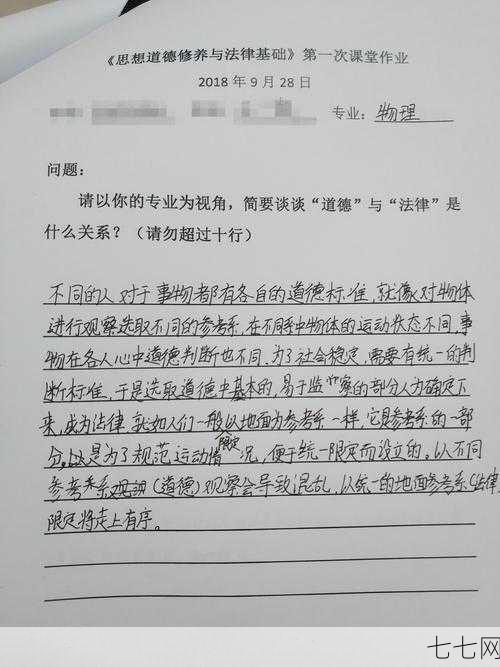 《思想道德修养与法律基础》第一次课堂作业
2018 年 9 月 28 日
专业：物理
问题：
请以你的专业为视角，简要谈谈“道德”与“法律”是
什么关系？（请勿超过十行）
不同的人对于事物都有各自的道德标准，就像对物体
进行观察选取不同的参考系，在不同系中物体的运动状态不同，事
物在各人心中道德判断也不同。为了社会稳定，需要有统一的判
断标准，于是选取道德中基本的，易于监察的部分人为确定下
来，成为法律，就如人们一般以地面为参考系一样，它是参考系的一部
分。是为了规范限定运动情况，便于统一限定而设立的。以不同
参考系（道德）观察会导致混乱，以统一的地面参考系（法律
限定将走上有序。
七七网